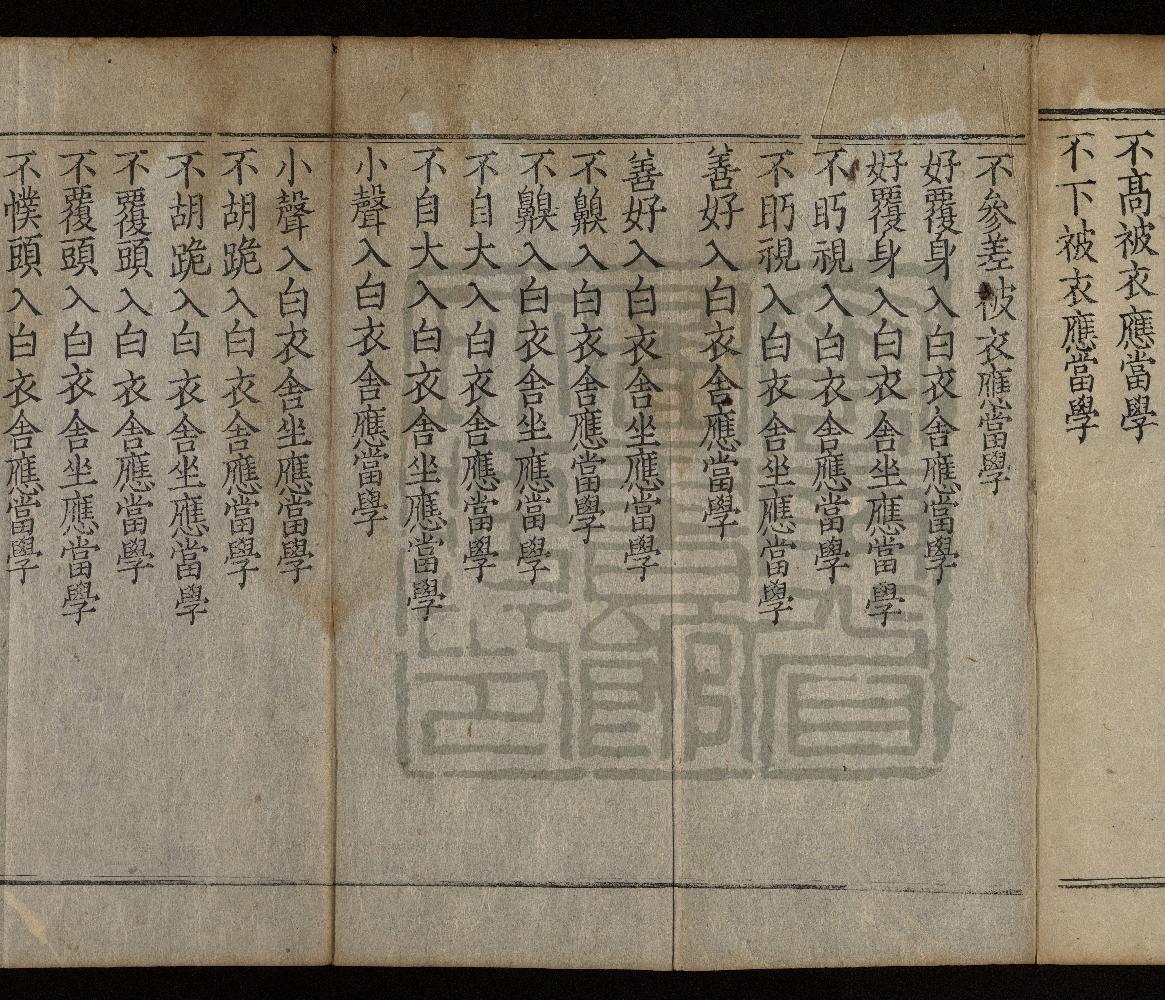 不高被衣應當學
不下被衣應當學
不參差被衣應當學
好覆身入白衣舍應當學
好覆身入白衣舍坐應當學
不眄視入白衣舍應當學
不眄視入白衣舍坐應當學
善好入白衣舍應當學
善好入白衣舍坐應當學
不䫌入白衣舍應當學
不䫌入白衣舍坐應當學
不自大入白衣舍應當學
不自大入白衣舍坐應當學
小聲入白衣舍應當學
小聲入白衣舍坐應當學
不胡跪入白衣舍應當學
不胡跪入白衣舍坐應當學
不覆頭入白衣舍應當學
不覆頭入白衣舍坐應當學
不幞頭入白衣舍應當學